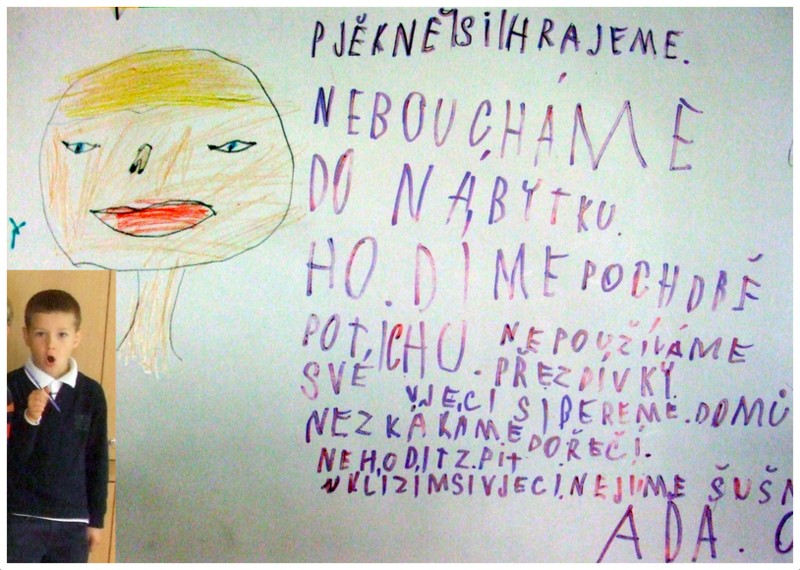 PJĚKNĚ SI HRAJEME.
NEBOUCHÁMĚ
DO NÁBYTKU.
HO.DÍME POCHDBĚ
POTICHU. NEPOUŽÍVÁME
SVÉ PŘEZDÍVKY.
VJECI SIBEREME.DOMŮ
NEZKÁKÁME DOŘEČI.
NEHODIT Z.PIT
UKLIZIMSIVJECI.NEJÍME ŠUŠN
ADA.